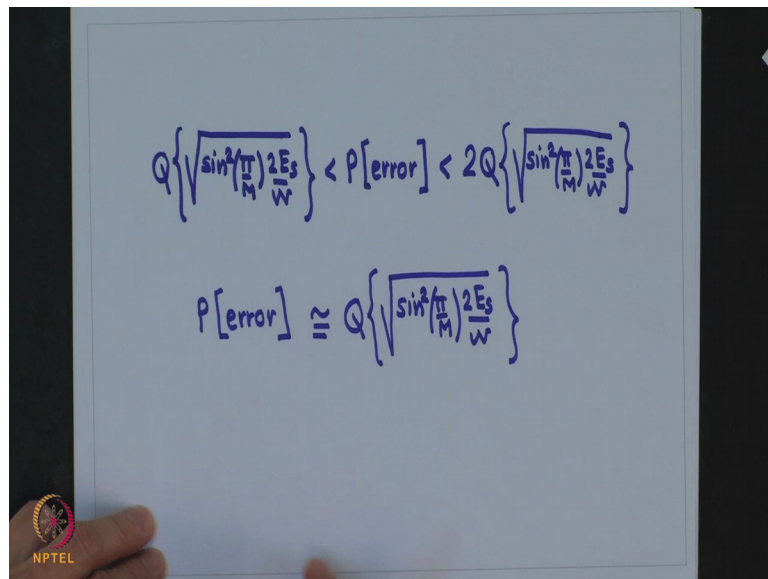 Q{√sin²(π/M) 2Es/N} < P[error] < 2Q{√sin²(π/M) 2Es/N}
P[error] ≅ Q{√sin²(π/M) 2Es/N}
NPTEL